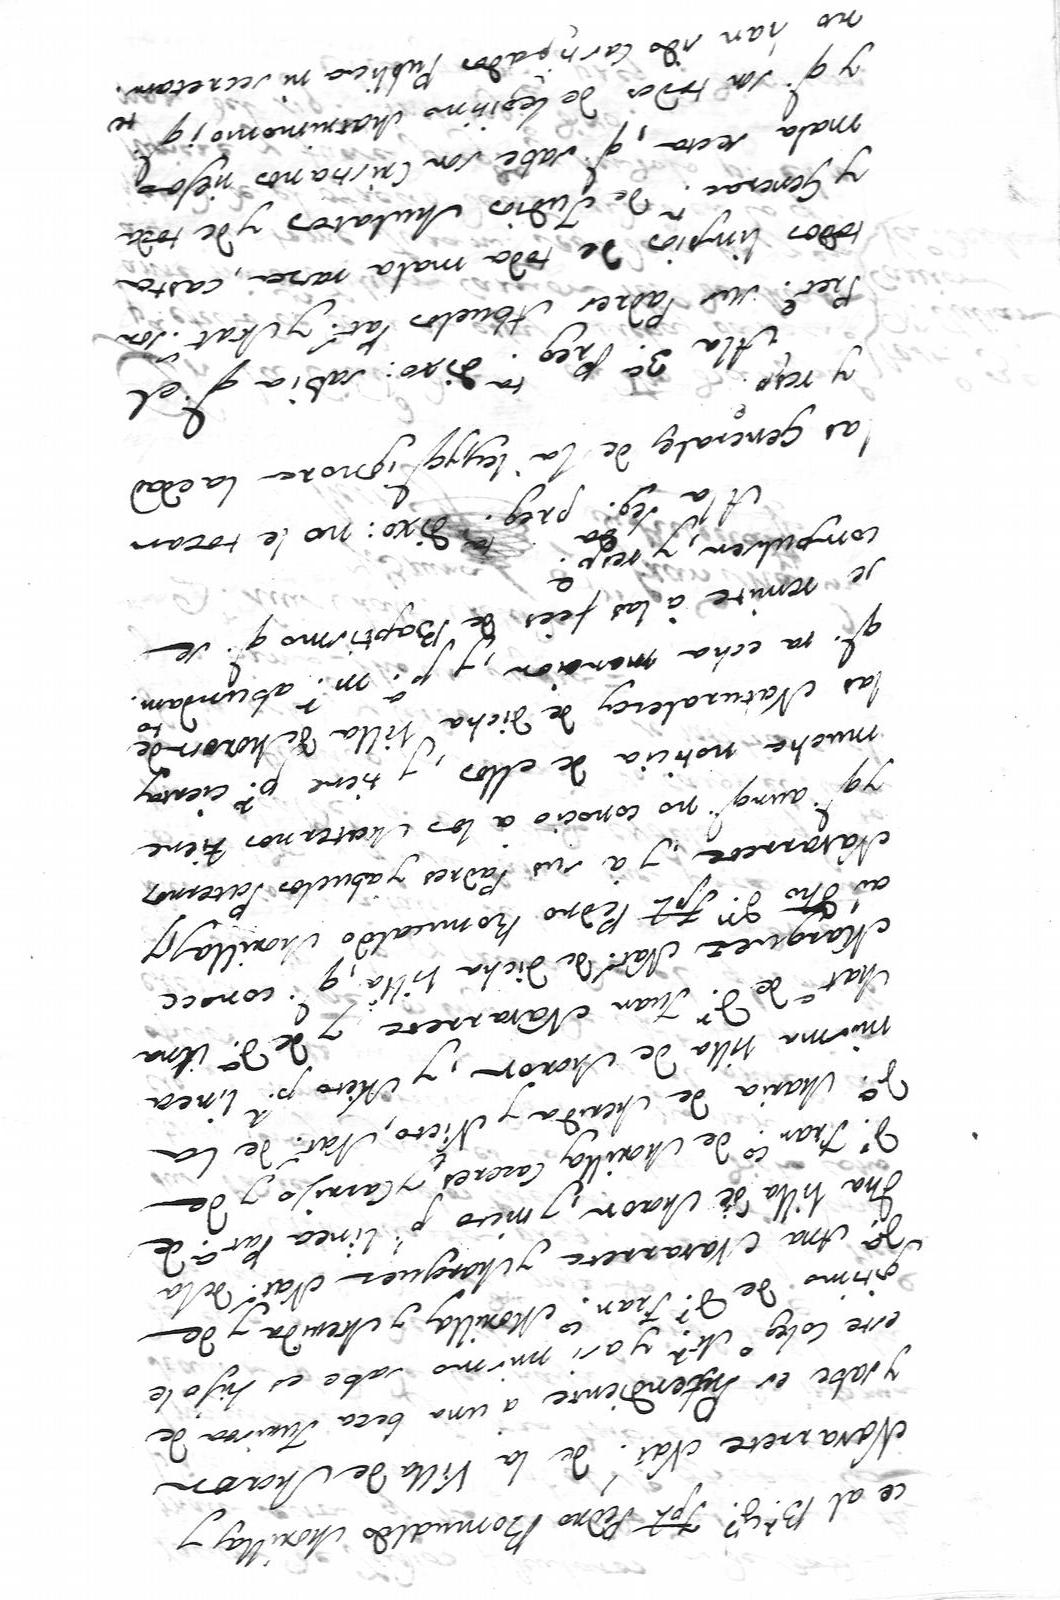 ce al B.r D.n Jph Pedro Romualdo Morilla, y
Navarrete Nat. de la Villa de Moron
y sabe es Pretendiente a una beca Jurista de
este Coleg.o M.r y asi mismo sabe es hijo le
gitimo de D.n Fran.co Morilla, y Merida y de
D.a Ana Navarrete y Marquez Nat. de la
dha Villa de Moron, y nieto p.r linea Pat.a de
D.n Fran.co de Morilla, Caceres, y Carrijo y de
D.a Maria de Merida y Nieto, Nat. de la
misma Villa de Moron, y Nieto p.r linea
Mat.a de D.n Juan Navarrete y de D.a Ana
Marquez Nat. de dicha Villa, q.e conoce
al dho D.n Jph Pedro Romualdo Morilla, y
Navarrete, y à sus Padres y abuelos Paternos
y q.e aunq.e no conocio a los Maternos tiene
mucha noticia de ellos, y tiene p.r ciertas
las Naturalezas de dicha Villa de Moron de
q.e va echa mencion, y p.a m.r abundam.to
se remite à las feès de Baptismo q.e se
compulsen, y resp.e
A la seg.da preg.ta dixo: no le tocan
las Generales de la Ley, q.e ignora la edad
y resp.e
A la 3.a preg.ta dixo: sabia q.e el
Pret.e sus Padres Abuelos Pat.s y Mat.s son
todos limpios de toda mala raza, casta
y Generac.n de Judios Mulatos y de toda
mala secta, q.e sabe son Cristianos viejos
y q.e son todos de legitimo Matrimonio, q.e
no han sido Castigados Publica ni secretam.te